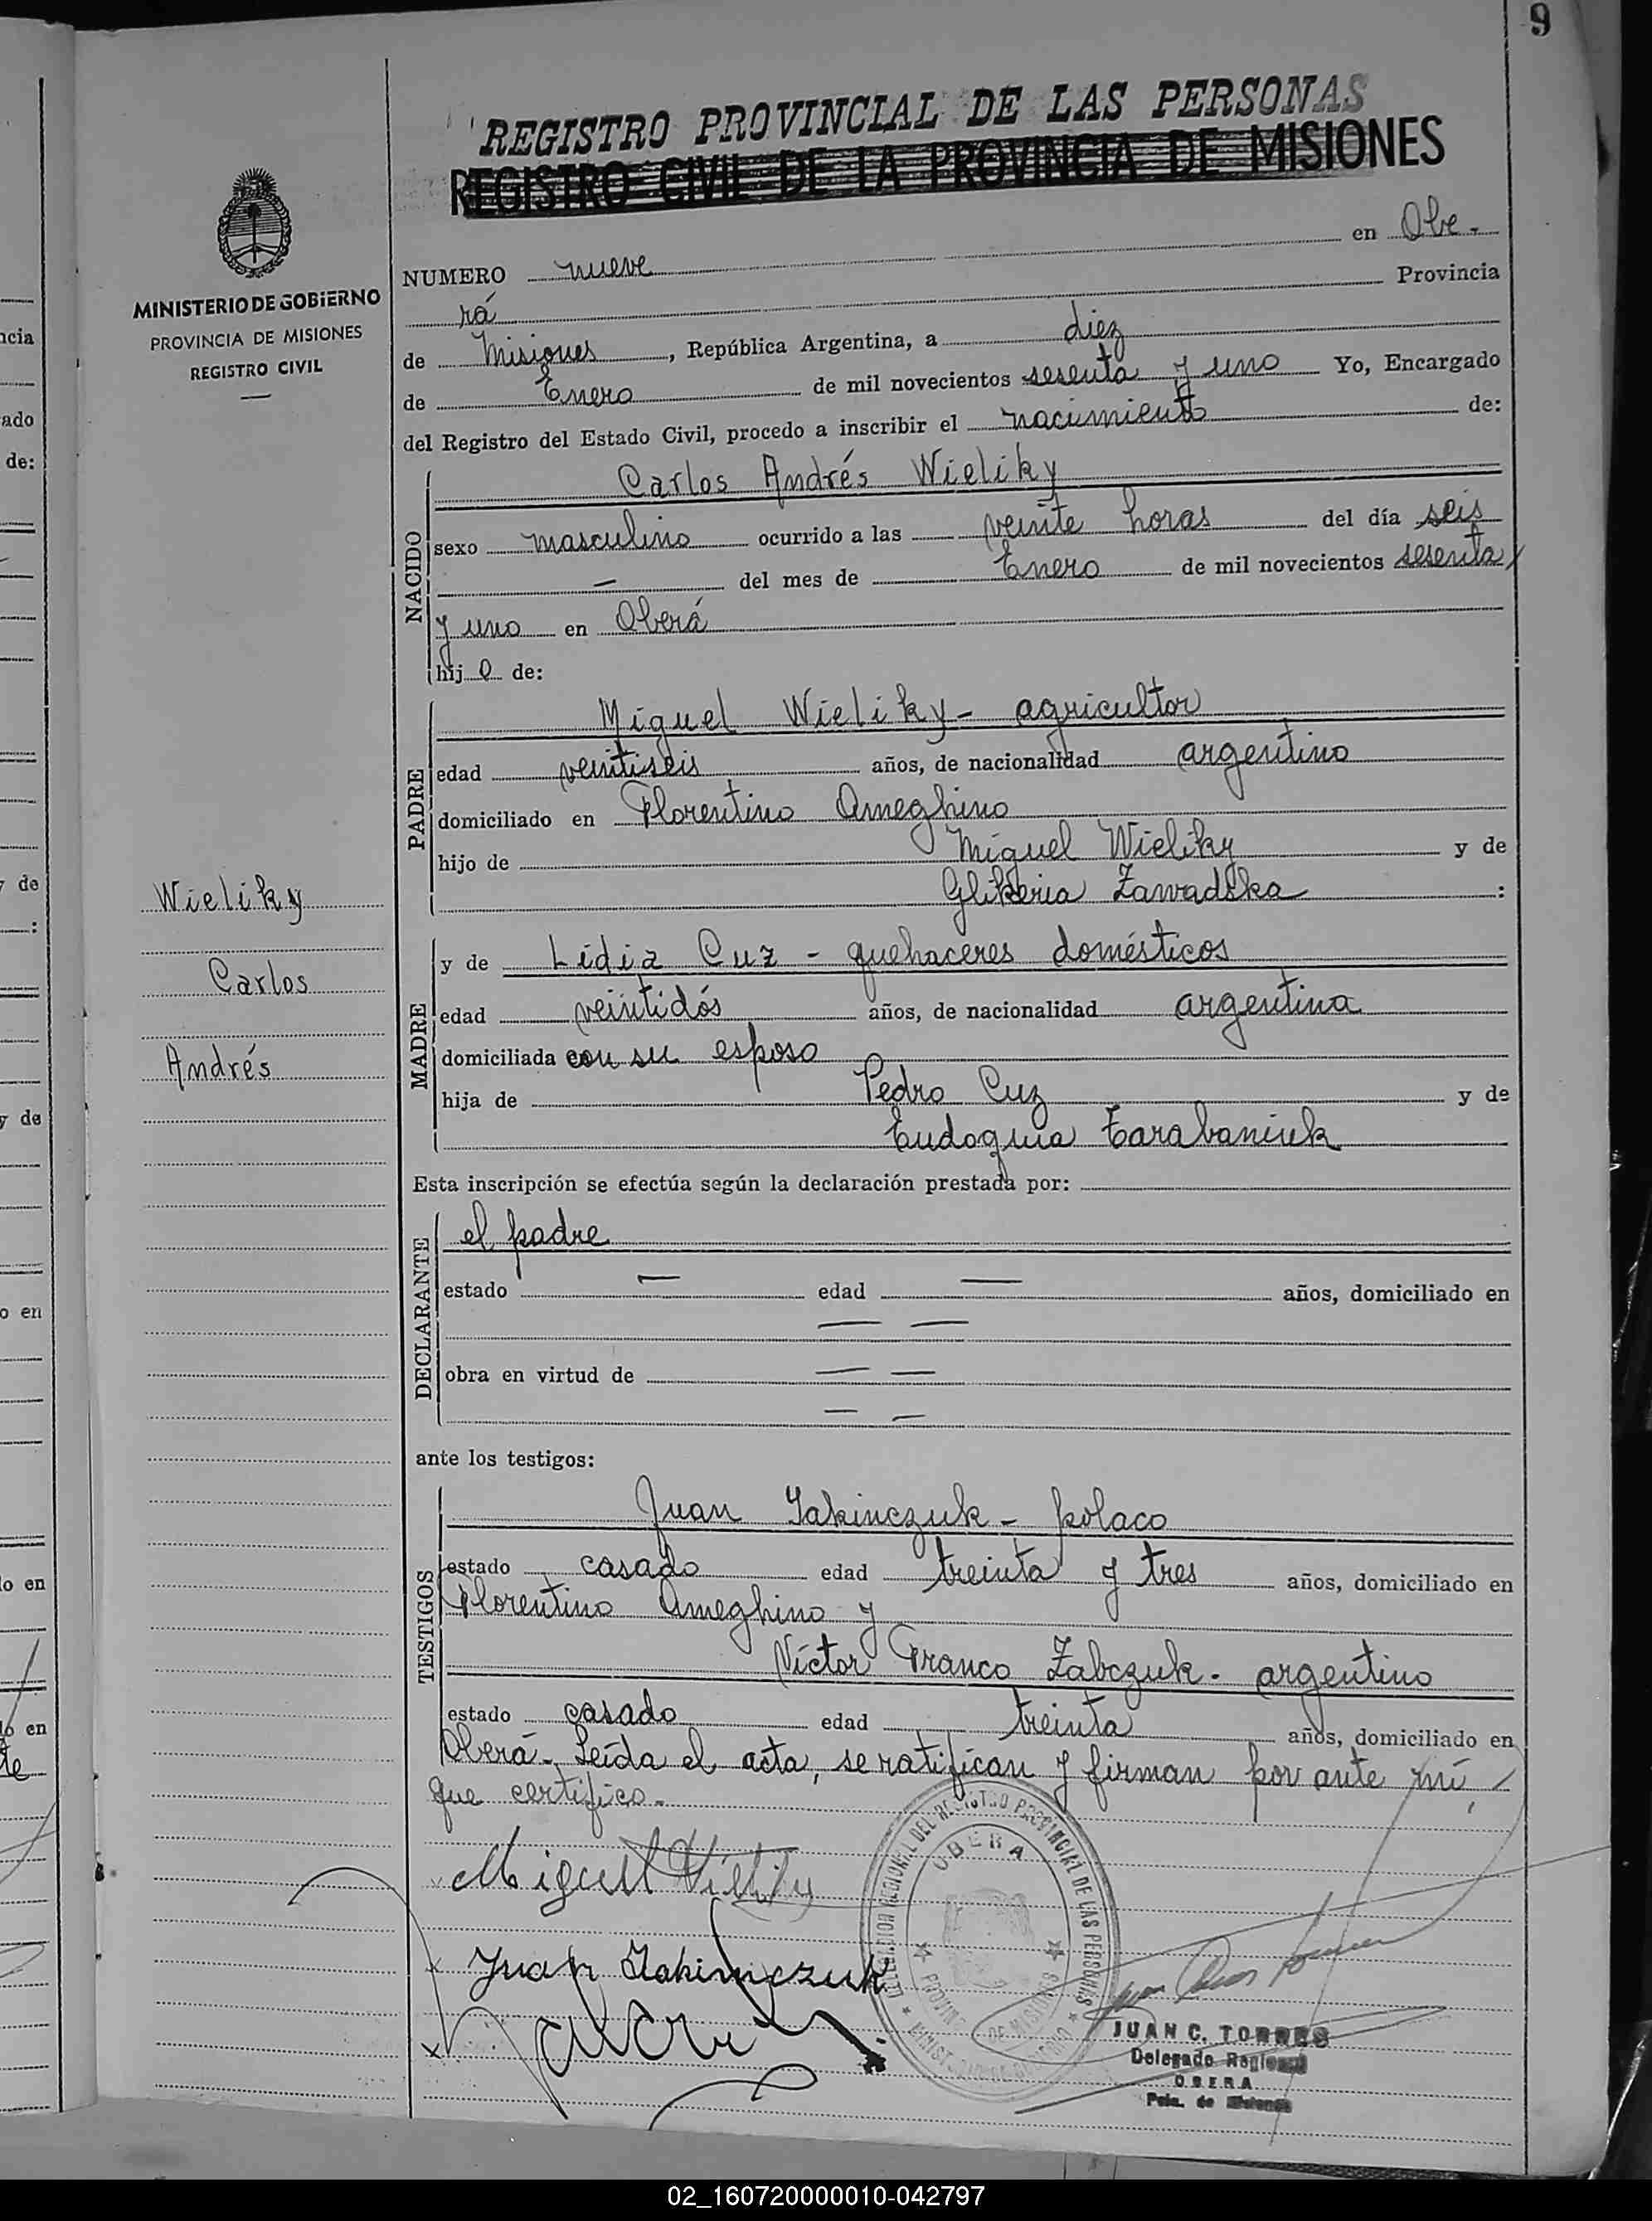 9
REGISTRO PROVINCIAL DE LAS PERSONAS
REGISTRO CIVIL DE LA PROVINCIA DE MISIONES
MINISTERIO DE GOBIERNO
PROVINCIA DE MISIONES
REGISTRO CIVIL
NUMERO nueve en Obe-
rá Provincia
de Misiones, República Argentina, a diez
de Enero de mil novecientos sesenta y uno Yo, Encargado
del Registro del Estado Civil, procedo a inscribir el nacimiento de:
NACIDO
Carlos Andrés Wieliky
sexo masculino ocurrido a las veinte horas del día seis
— del mes de Enero de mil novecientos sesenta
y uno en Oberá
hijo de:
PADRE
Miguel Wieliky - agricultor
edad veintiseis años, de nacionalidad argentino
domiciliado en Florentino Ameghino
hijo de Miguel Wieliky y de
Glikeria Zawadska :
Wieliky
Carlos
Andrés
MADRE
y de Lidia Cuz - quehaceres domésticos
edad veintidós años, de nacionalidad argentina
domiciliada con su esposo
hija de Pedro Cuz y de
Eudoquia Tarabaniuk
Esta inscripción se efectúa según la declaración prestada por:
DECLARANTE
el padre
estado — edad — años, domiciliado en
— —
obra en virtud de — —
— —
ante los testigos:
TESTIGOS
Juan Yakinczuk - polaco
estado casado edad treinta y tres años, domiciliado en
Florentino Ameghino y
Víctor Franco Zabczuk - argentino
estado casado edad treinta años, domiciliado en
Oberá - Leída el acta, se ratifican y firman por ante mí,
que certifico.-
Miguel Wieliky
Juan Yakimczuk
DELEGACION REGIONAL DEL REGISTRO PROVINCIAL DE LAS PERSONAS
OBERA
JUAN C. TORRES
Delegado Regional
OBERA
Pcia. de Misiones
02_160720000010-042797